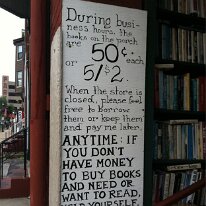 During busi-
ness hours, the
books on the porch
are 50¢ each
or 5/$2.
When the store is
closed, please feel
free to borrow
them or keep them
and pay me later.
ANYTIME: IF
YOU DON'T
HAVE MONEY
TO BUY BOOKS
AND NEED OR
WANT TO READ,
HELP YOURSELF